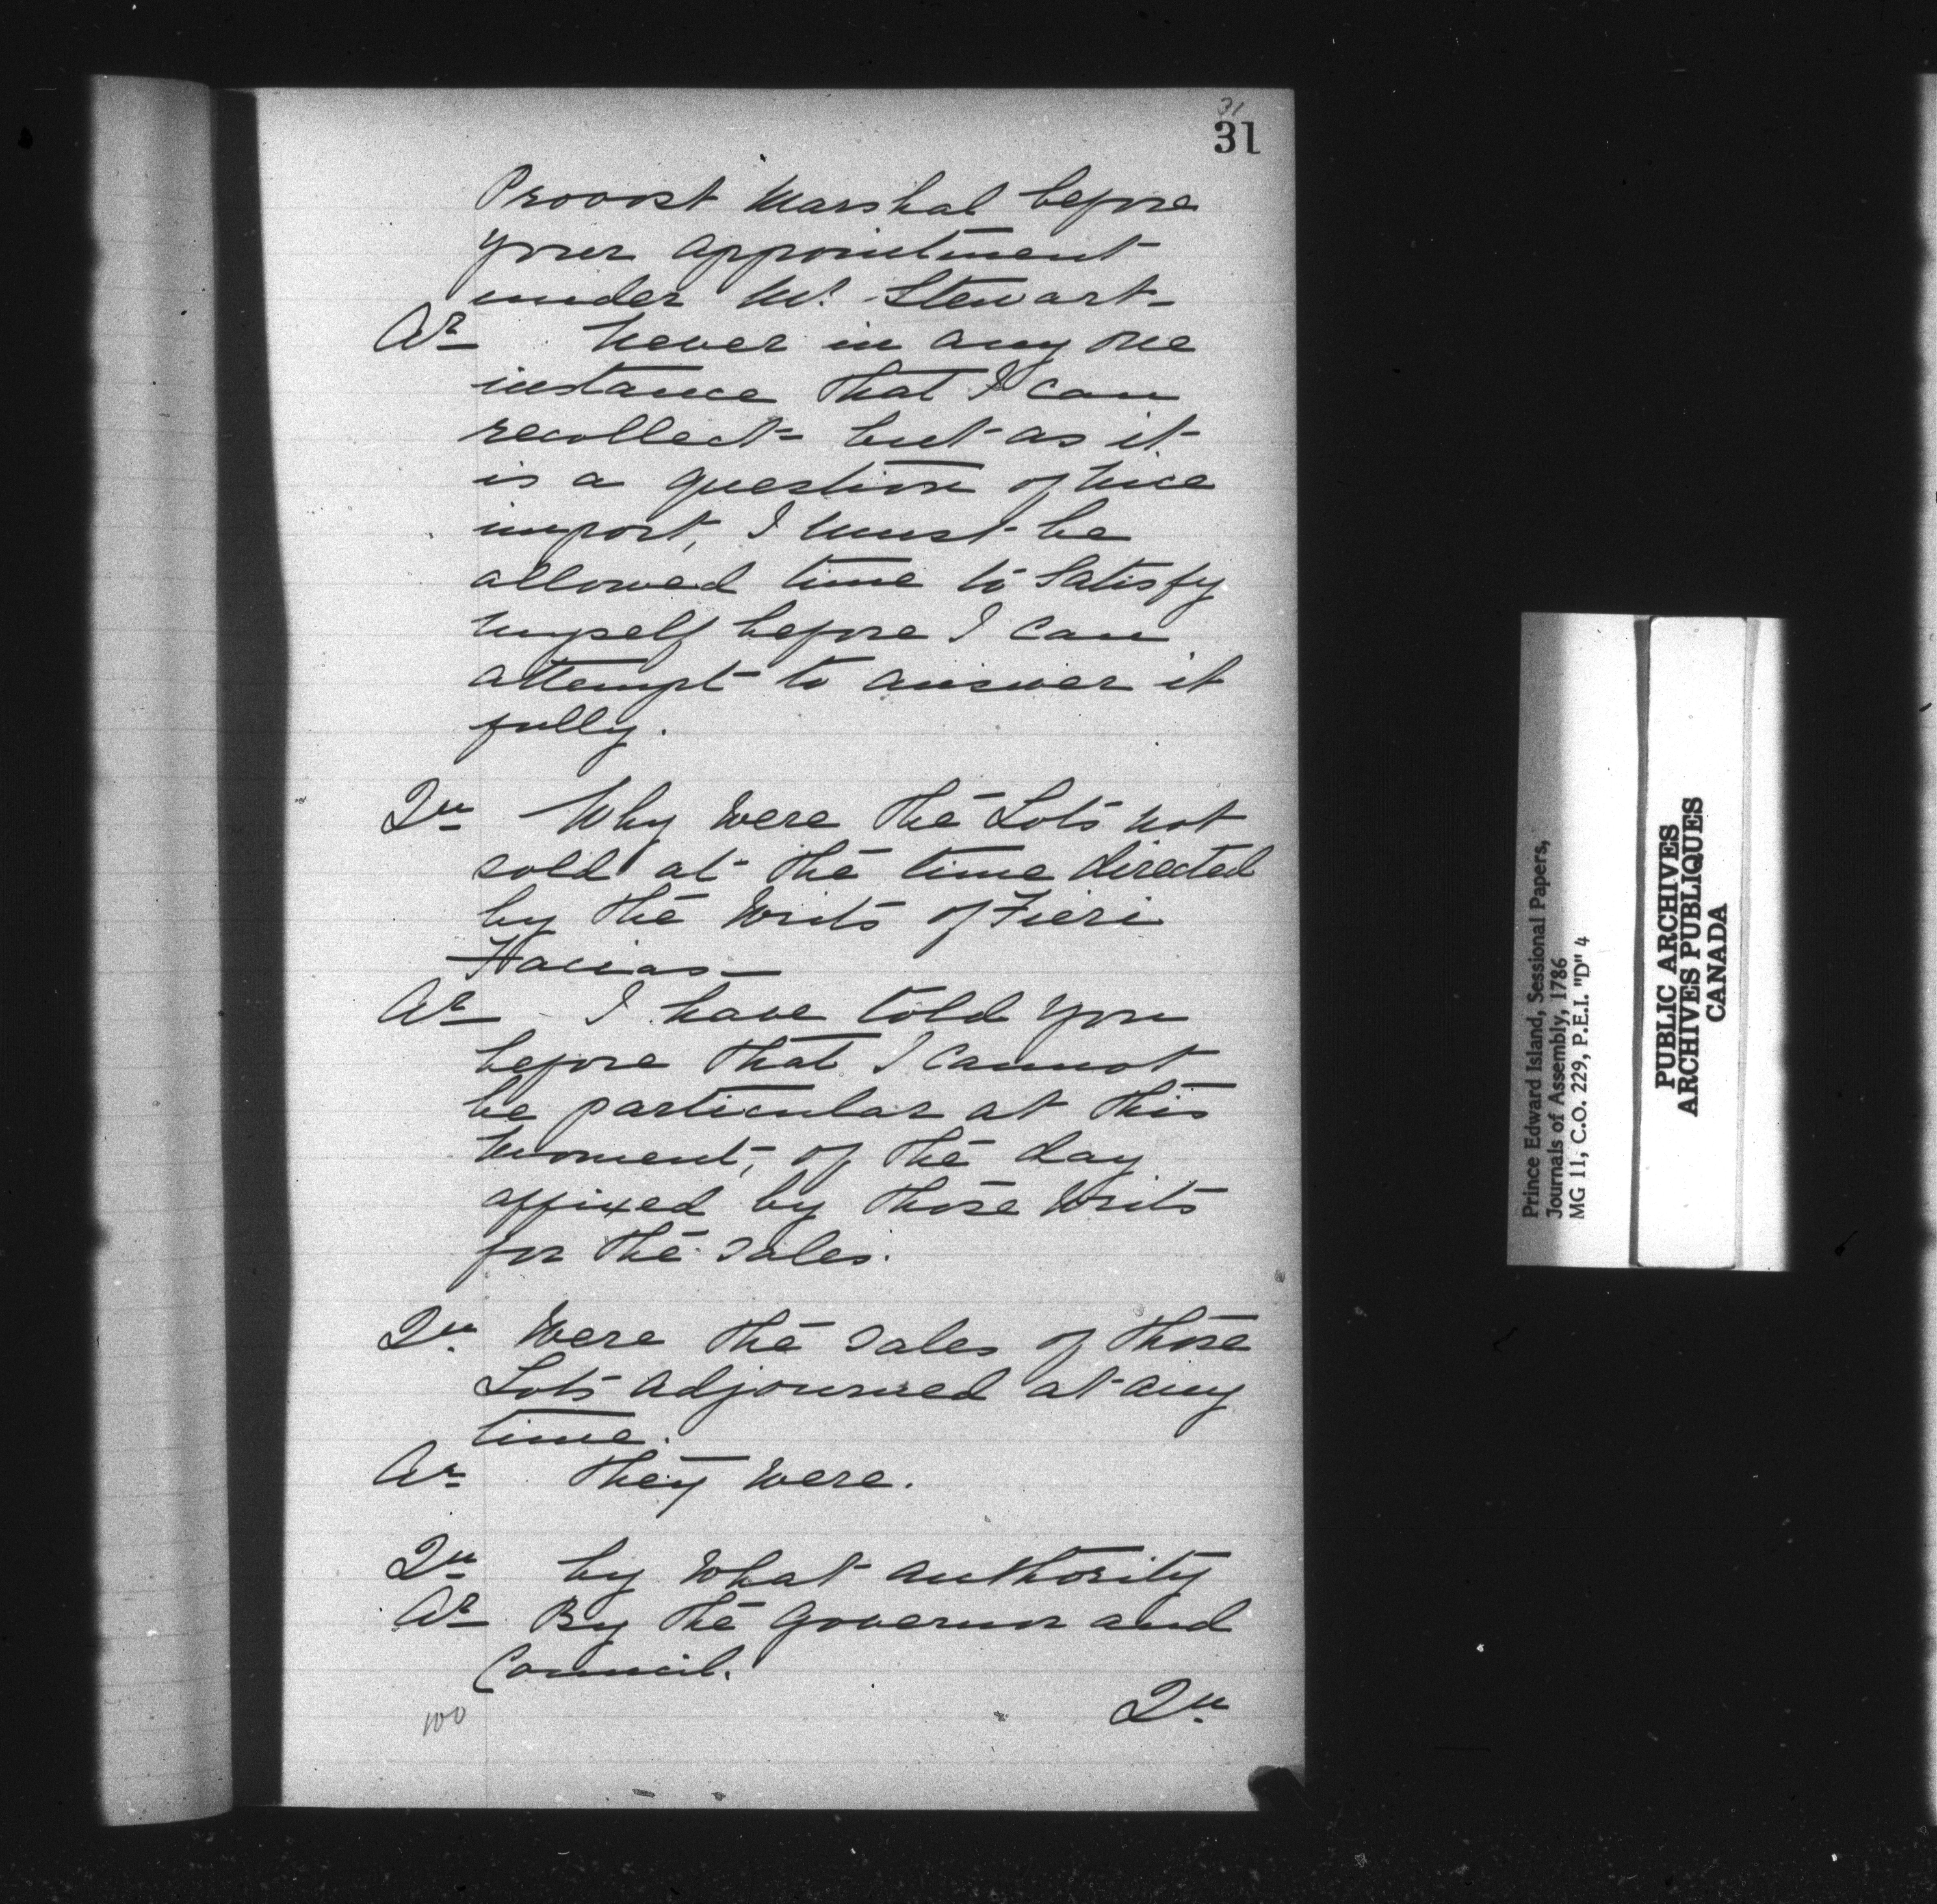 31
31
Provost Marshal before
your appointment
under Mr. Stewart-
Ar. Never in any one
instance that I can
recollect- but as it
is a question of nice
import, I must be
allowed time to Satisfy
myself before I can
attempt to answer it
fully.
Qu. Why were the Lots not
sold at the time directed
by the Writs of Fieri
Facias-
Ar. - I have told you
before that I cannot
be particular at this
moment, of the day
affixed by those Writs
for the sales.
Qu. Were the sales of those
Lots adjourned at any
time.
Ar. They were.
Qu. by what authority
Ar. By the Governor and
Council.
Qu.
100
Prince Edward Island, Sessional Papers,
Journals of Assembly, 1786
MG 11, C.O. 229, P.E.I. "D" 4
PUBLIC ARCHIVES
ARCHIVES PUBLIQUES
CANADA